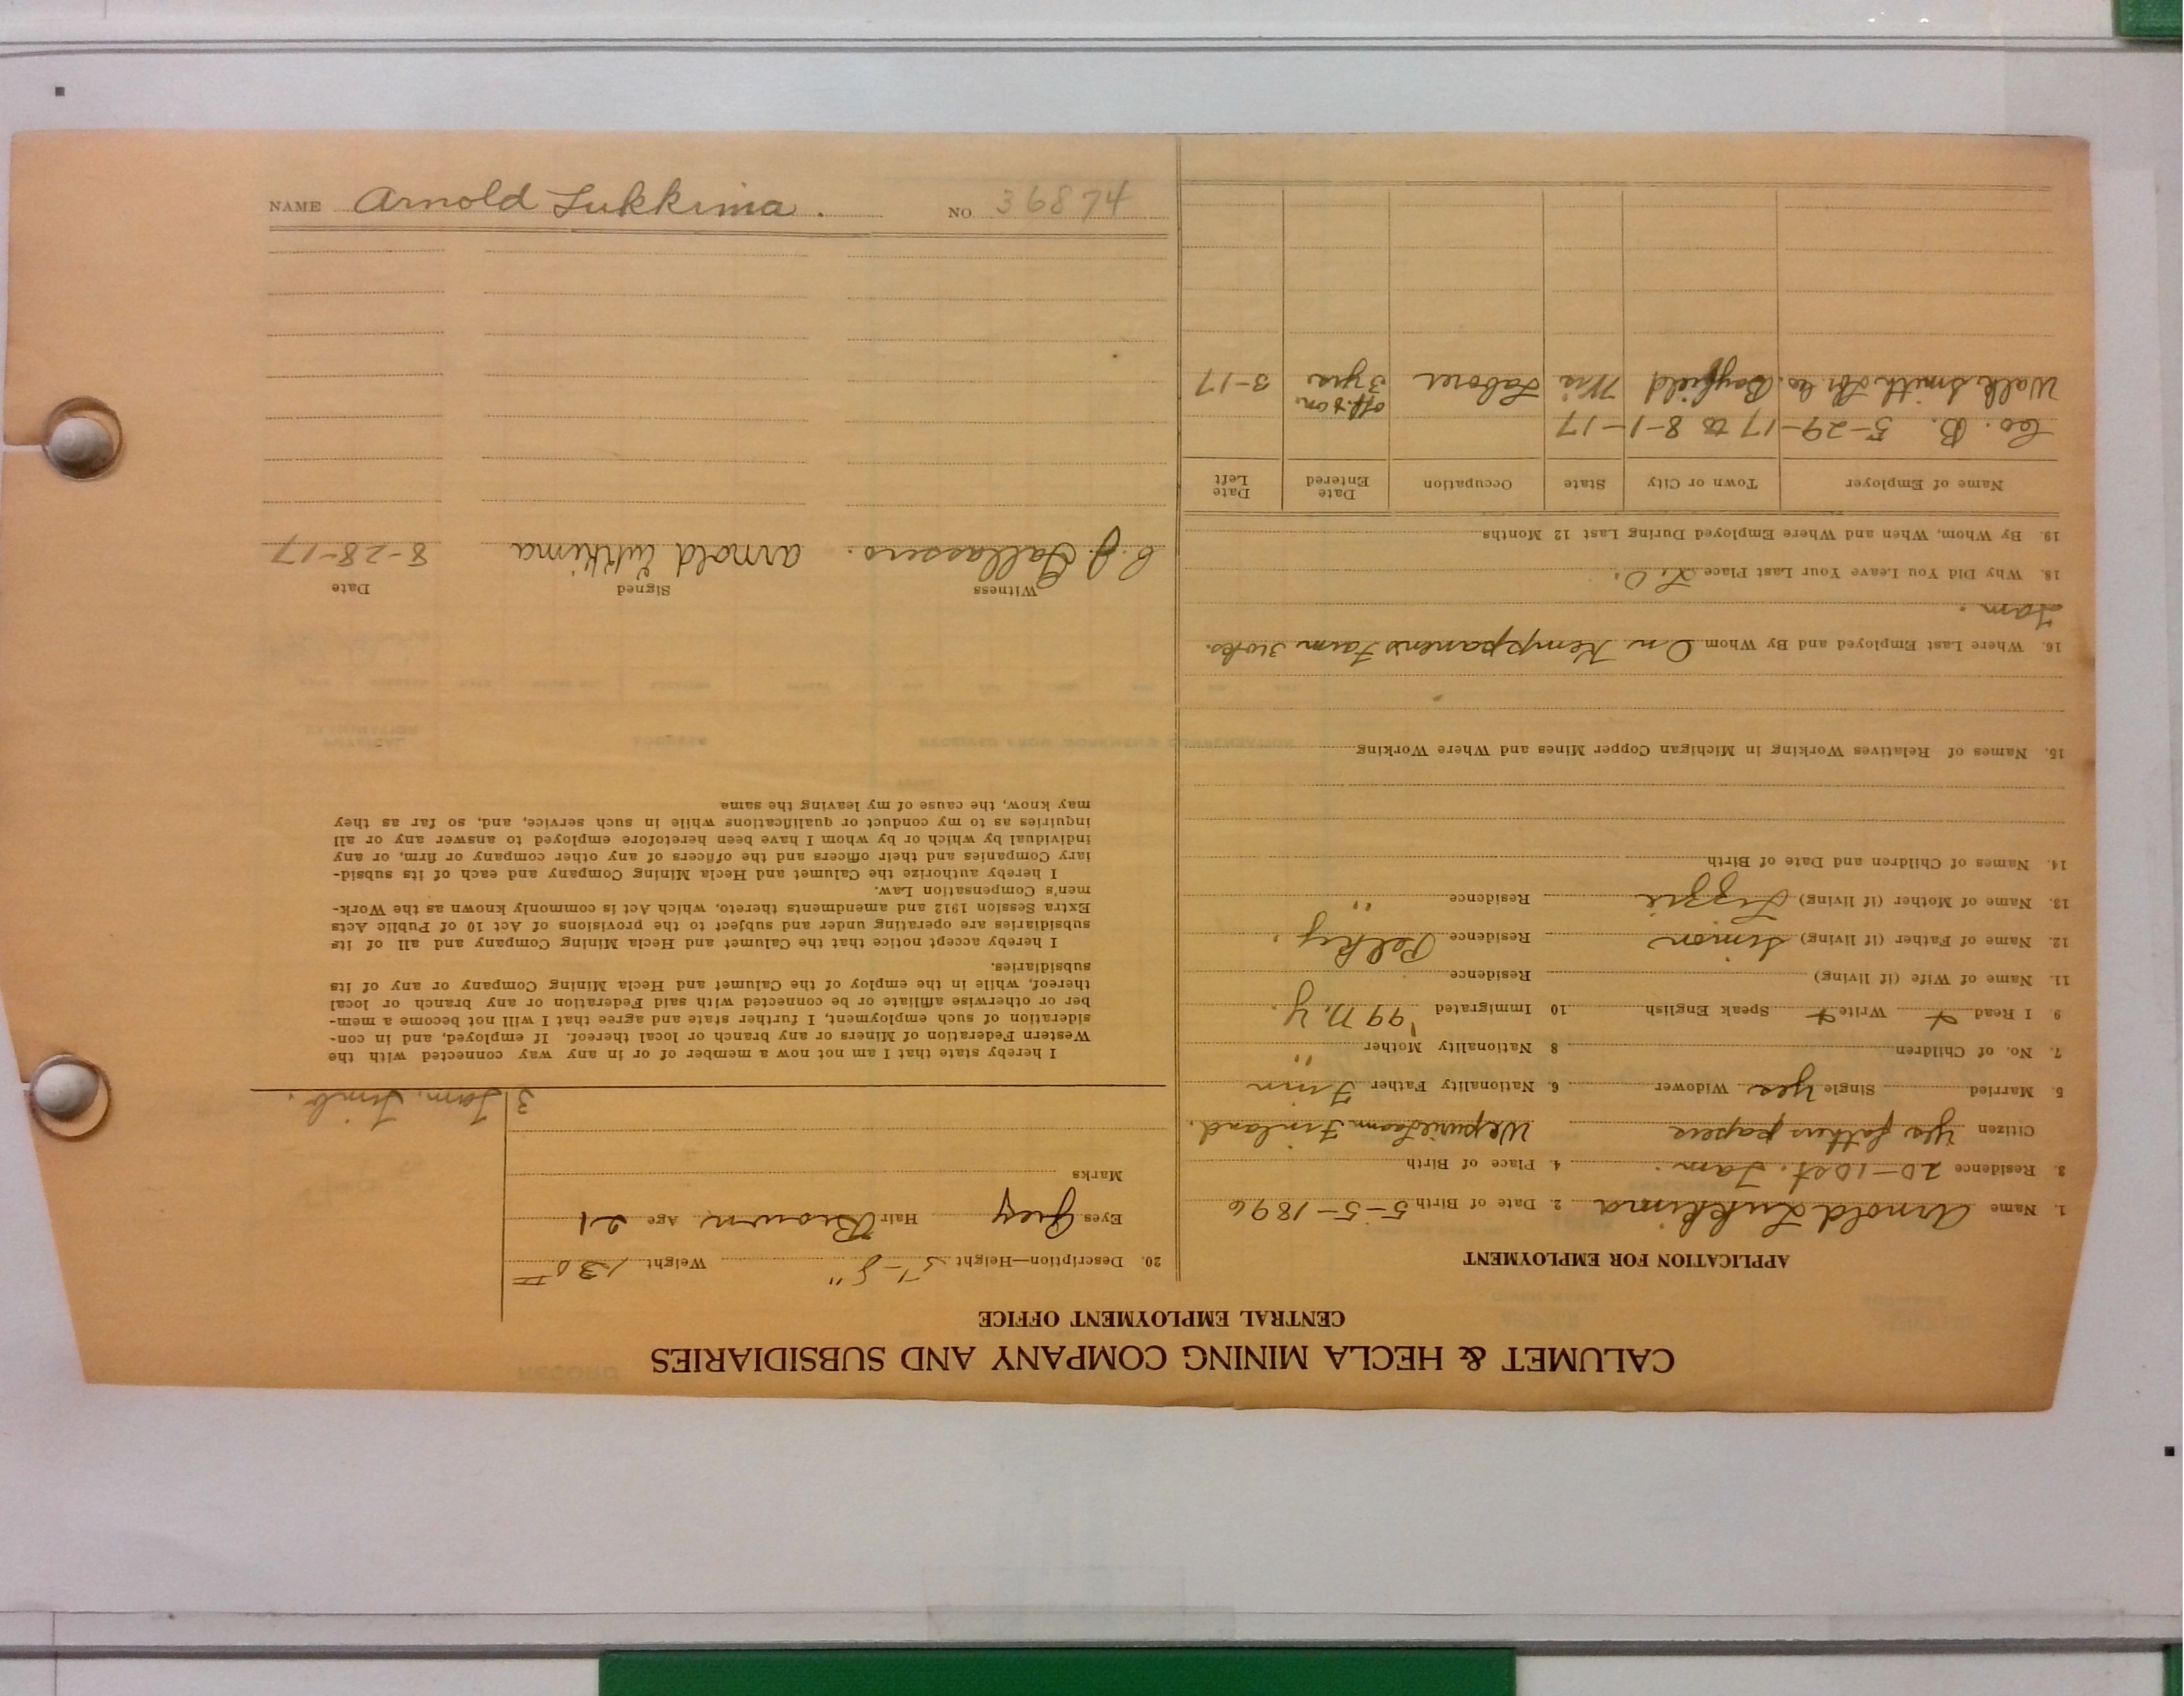 CALUMET & HECLA MINING COMPANY AND SUBSIDIARIES
CENTRAL EMPLOYMENT OFFICE
APPLICATION FOR EMPLOYMENT
1. Name Arnold Lukkima 2. Date of Birth 5-5-1896
3. Residence 20-1 Oct. Tam. 4. Place of Birth
Citizen Yes fathers papers Finland.
5. Married Single Yes Widower 6. Nationality Father Finn
7. No. of Children 8 Nationality Mother "
9 I Read + Write + Speak English 10 Immigrated '99 N.Y.
11. Name of Wife (if living) Residence
12. Name of Father (if living) Simon Residence Pelky.
13. Name of Mother (if living) Lizzie Residence "
14. Names of Children and Date of Birth
15. Names of Relatives Working in Michigan Copper Mines and Where Working
16. Where Last Employed and By Whom On Kemppanens Farm 3 wks.
Tam.
18. Why Did You Leave Your Last Place L.O.
19. By Whom, When and Where Employed During Last 12 Months
Name of Employer Town or City State Occupation Date Entered Date Left
Co. B. 5-29-17 to 8-1-17
off & on.
Smith Lbr Co. Bayfield Wis Laborer 3 yrs 3-17
20. Description—Height 5'-8" Weight 130#
Eyes Grey Hair Brown Age 21
Marks
3 Tam. Timb.
I hereby state that I am not now a member of or in any way connected with the
Western Federation of Miners or any branch or local thereof. If employed, and in con-
sideration of such employment, I further state and agree that I will not become a mem-
ber or otherwise affiliate or be connected with said Federation or any branch or local
thereof, while in the employ of the Calumet and Hecla Mining Company or any of its
subsidiaries.
I hereby accept notice that the Calumet and Hecla Mining Company and all of its
subsidiaries are operating under and subject to the provisions of Act 10 of Public Acts
Extra Session 1912 and amendments thereto, which Act is commonly known as the Work-
men's Compensation Law.
I hereby authorize the Calumet and Hecla Mining Company and each of its subsid-
iary Companies and their officers and the officers of any other company or firm, or any
individual by which or by whom I have been heretofore employed to answer any or all
inquiries as to my conduct or qualifications while in such service, and, so far as they
may know, the cause of my leaving the same
Witness Signed Date
Arnold Lukkima 8-28-17
NAME Arnold Lukkima. NO. 36874